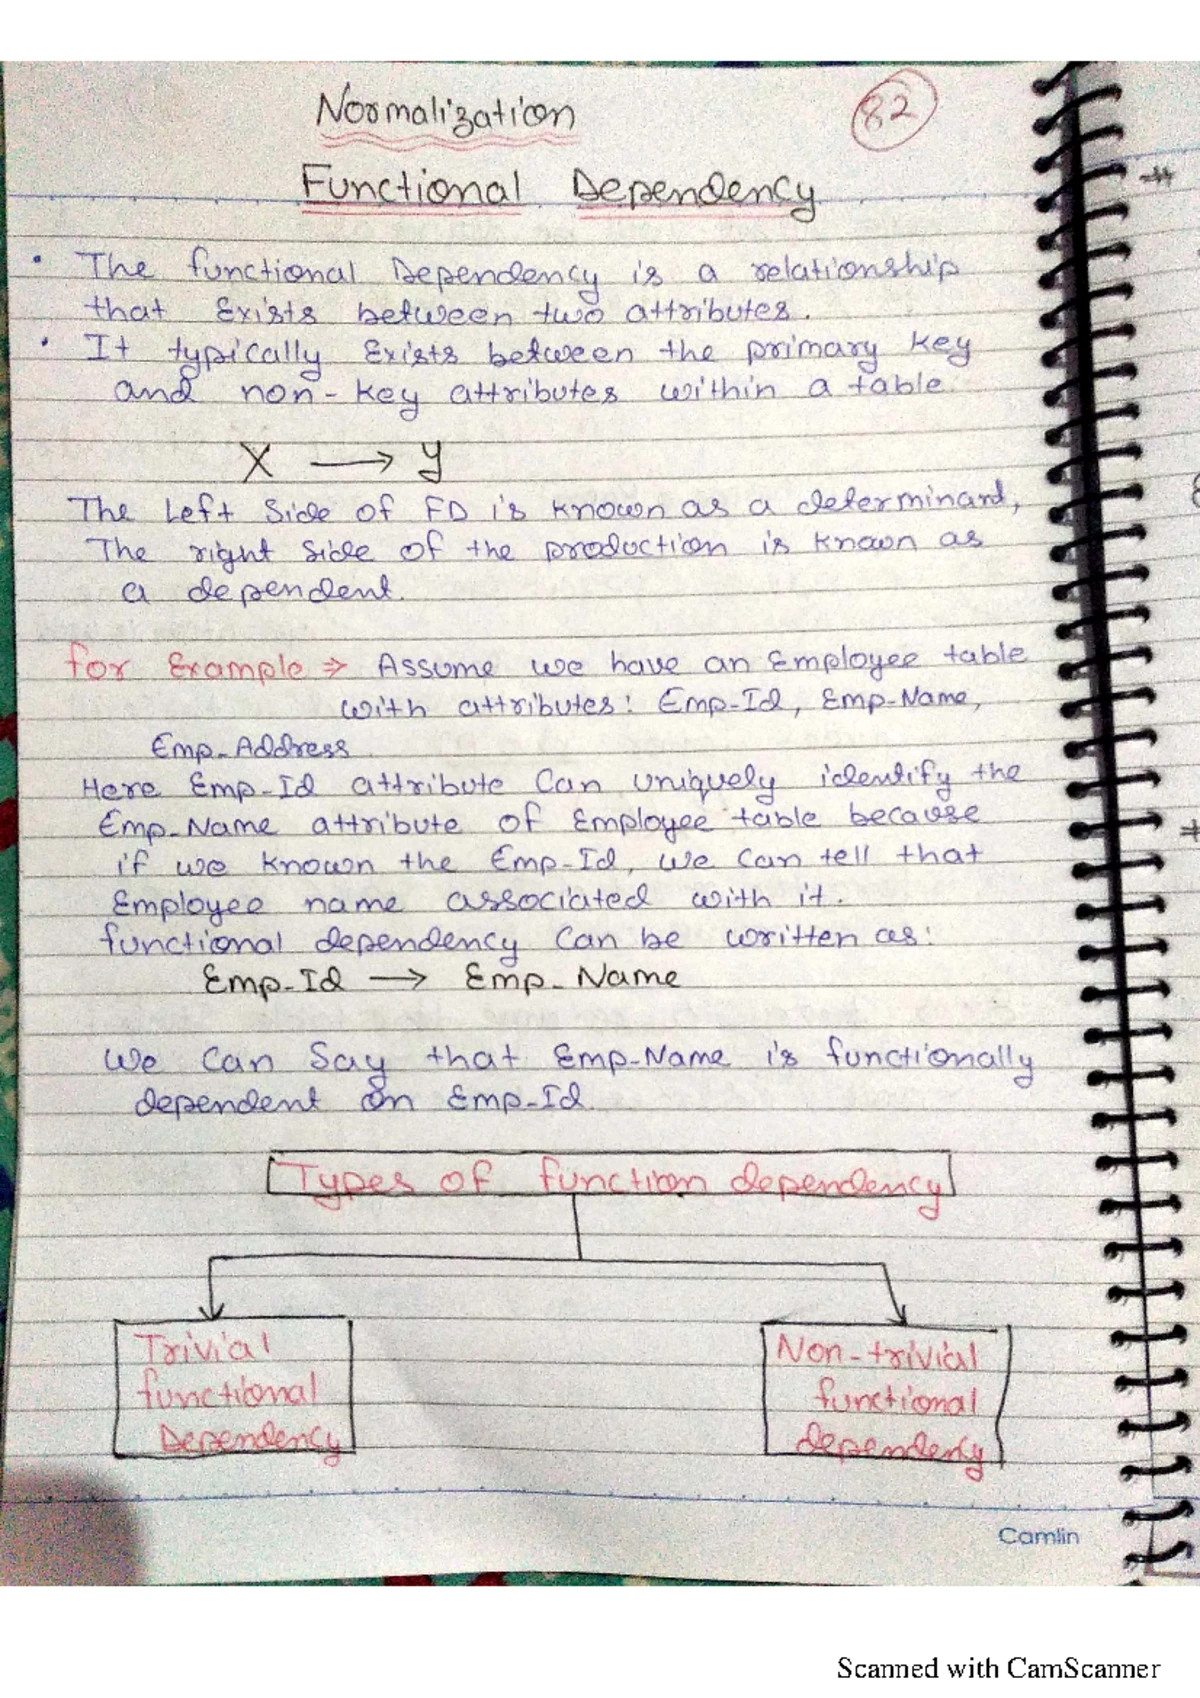 Normalization
82
Functional Dependency
• The functional Dependency is a relationship
that Exists between two attributes.
• It typically Exists between the primary key
and non-key attributes within a table.
X → y
The Left Side of FD is known as a determinant,
The right side of the production is known as
a dependent.
for Example ⇒ Assume we have an Employee table
with attributes: Emp-Id, Emp-Name,
Emp-Address
Here Emp-Id attribute Can uniquely identify the
Emp-Name attribute of Employee table because
if we known the Emp-Id, we can tell that
Employee name associated with it.
functional dependency Can be written as:
Emp-Id → Emp-Name
We Can Say that Emp-Name is functionally
dependent on Emp-Id.
Types of function dependency
Trivial
functional
Dependency
Non-trivial
functional
dependency
Camlin
Scanned with CamScanner